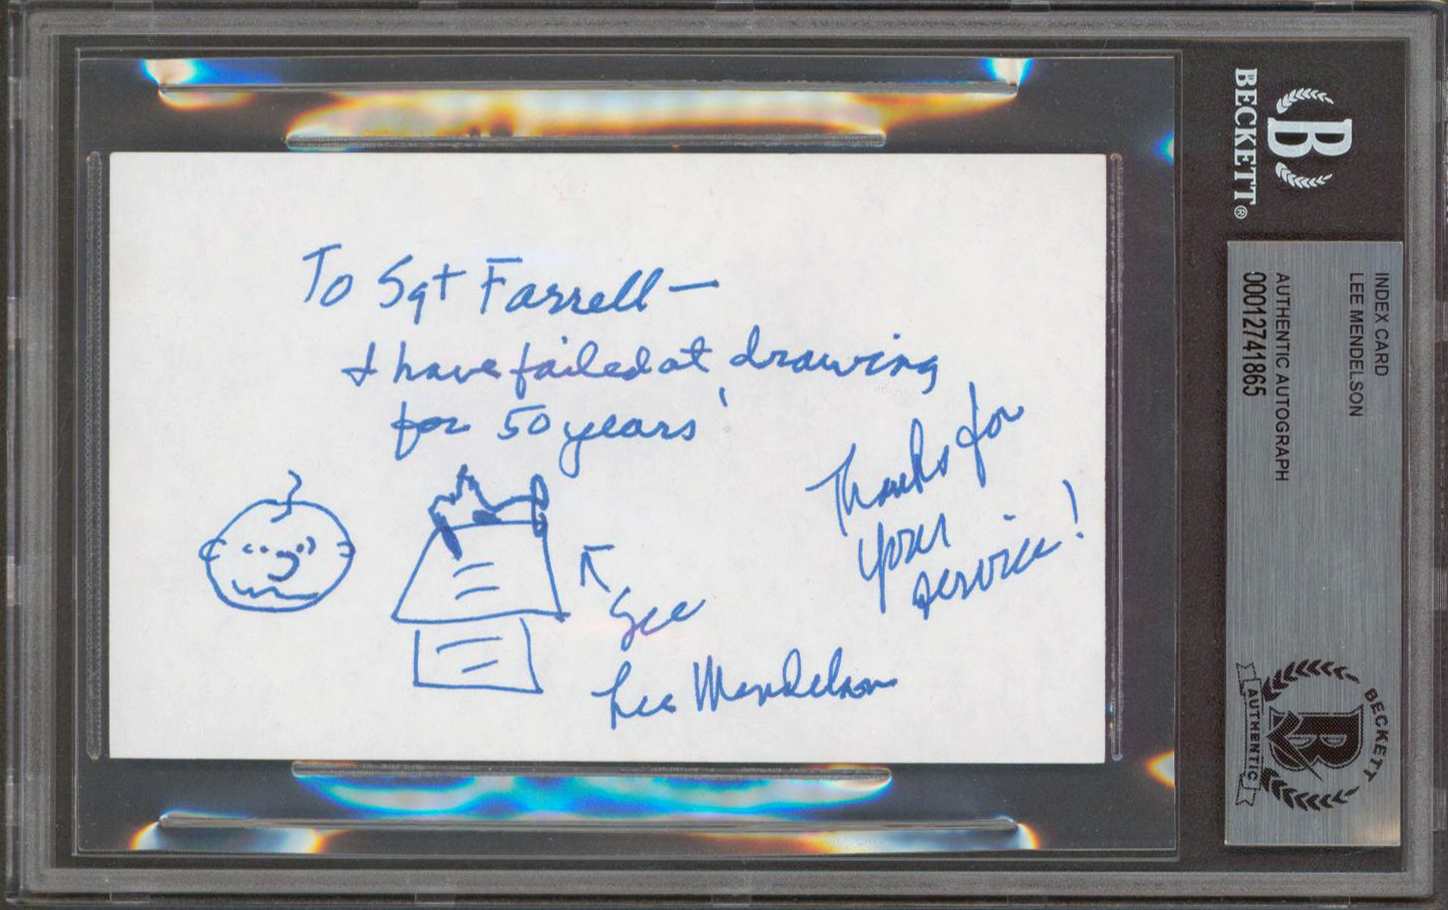 To Sgt Farrell —
I have failed at drawing
for 50 years!
Thanks for
your
service!
See
Lee Mendelson
BECKETT®
B
INDEX CARD
LEE MENDELSON
AUTHENTIC AUTOGRAPH
00012741865
BECKETT
B
AUTHENTIC